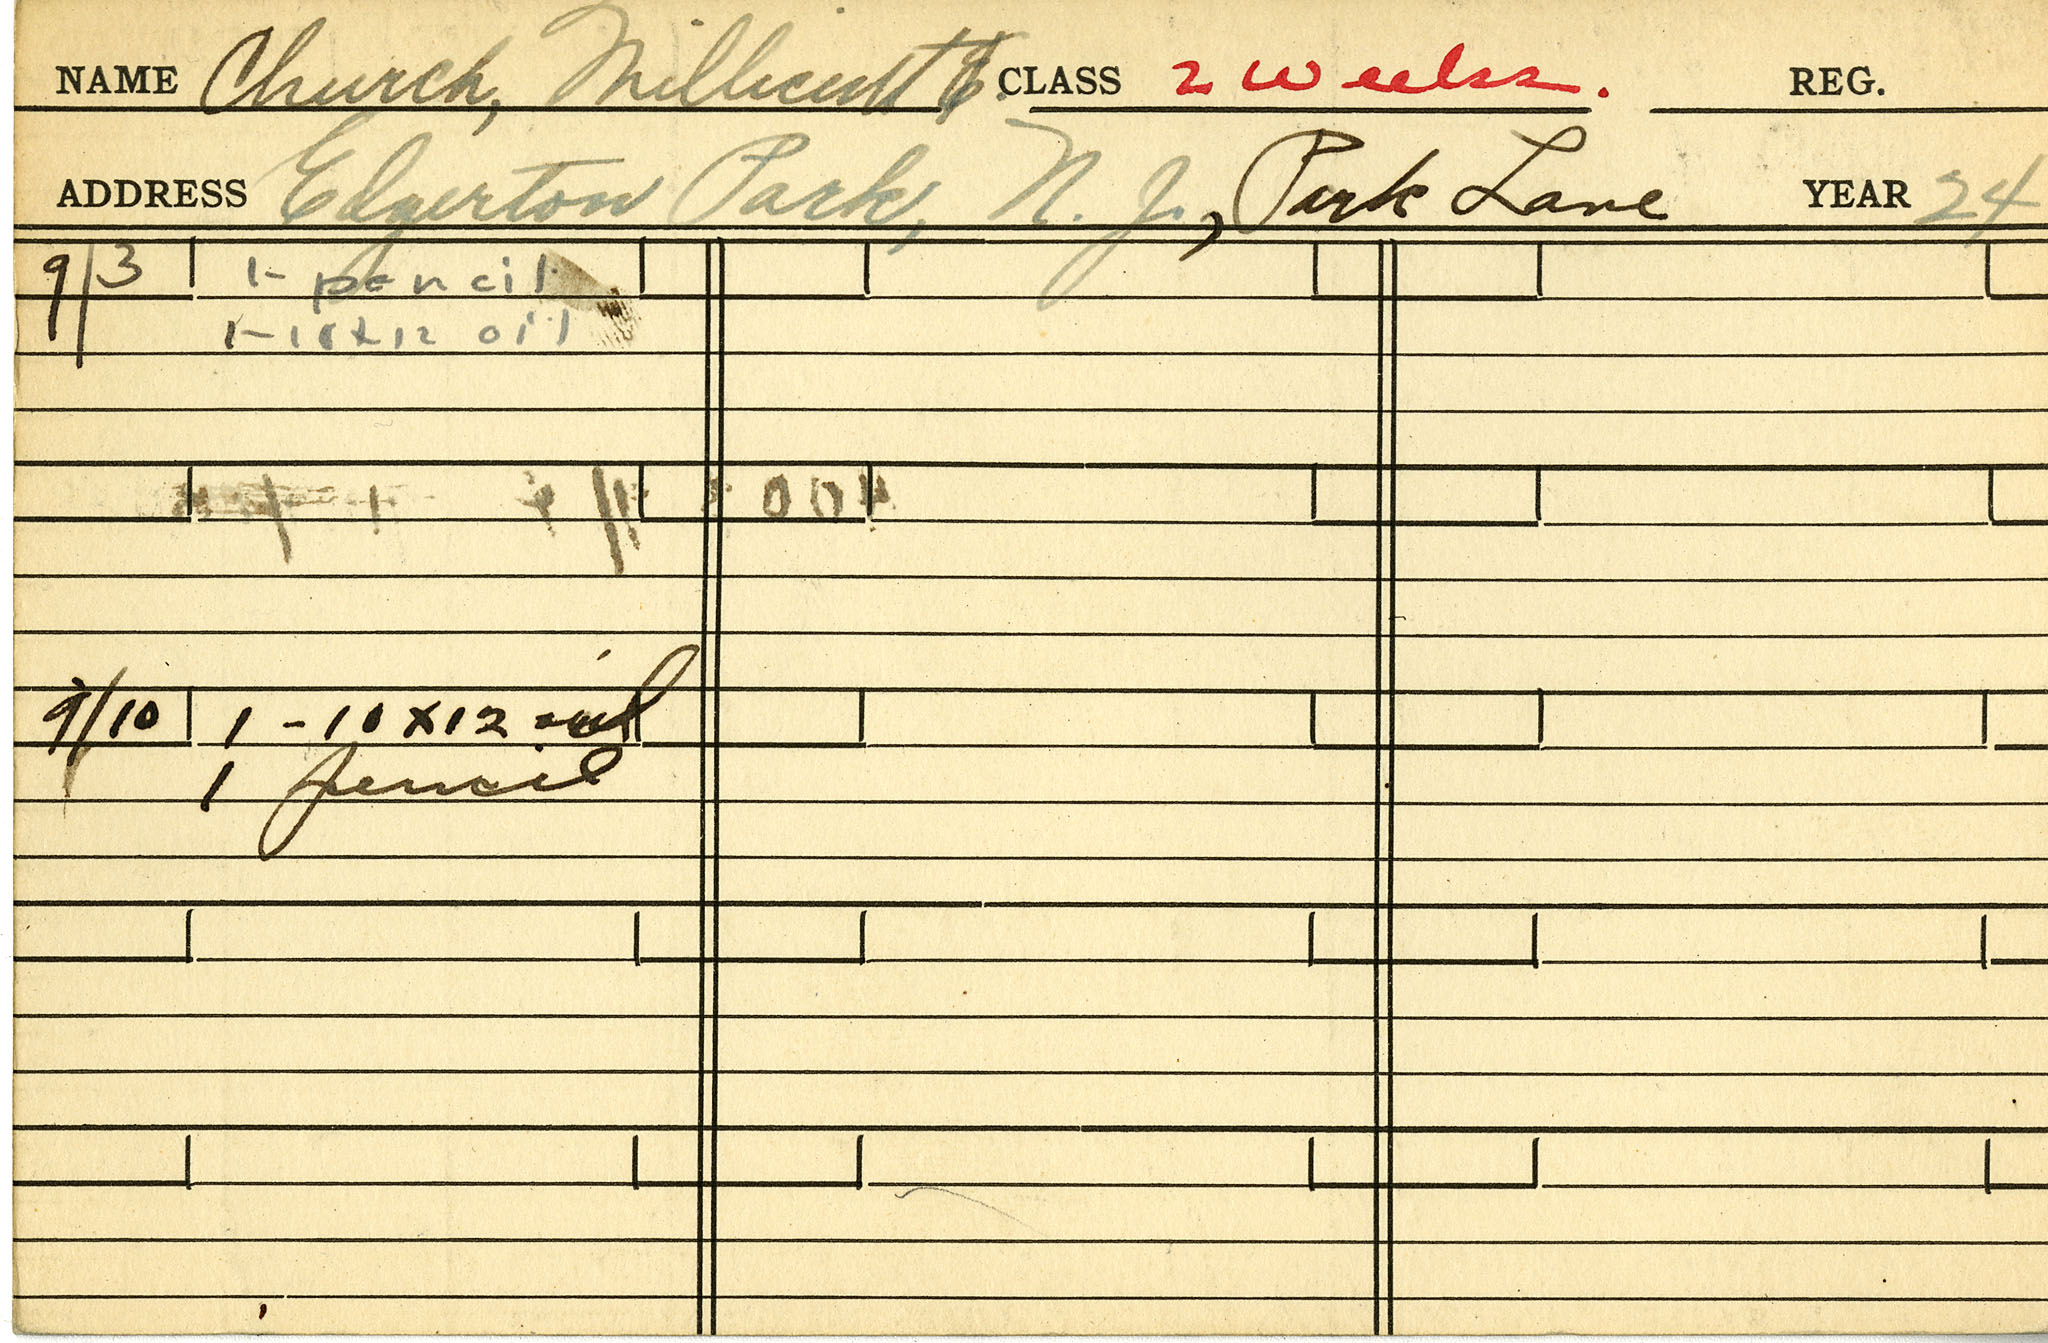 NAME Church, Millicent E. CLASS 2 Weeks. REG.
ADDRESS Edgerton Park, N. J., Park Lane YEAR 24
9/3 1- pencil
1-10x12 oil
9/10 1 - 10x12 oil
1 pencil